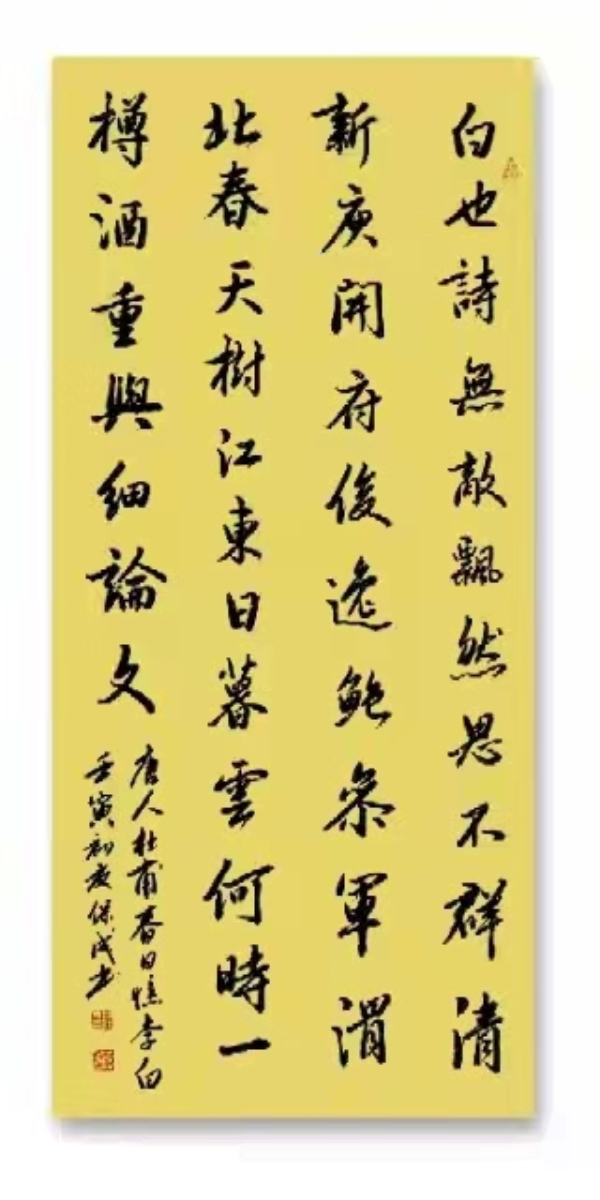 白也詩無敵飄然思不群清
新庾開府俊逸鮑參軍渭
北春天樹江東日暮雲何時一
樽酒重與細論文
唐人杜甫春日憶李白
壬寅初夏保成书